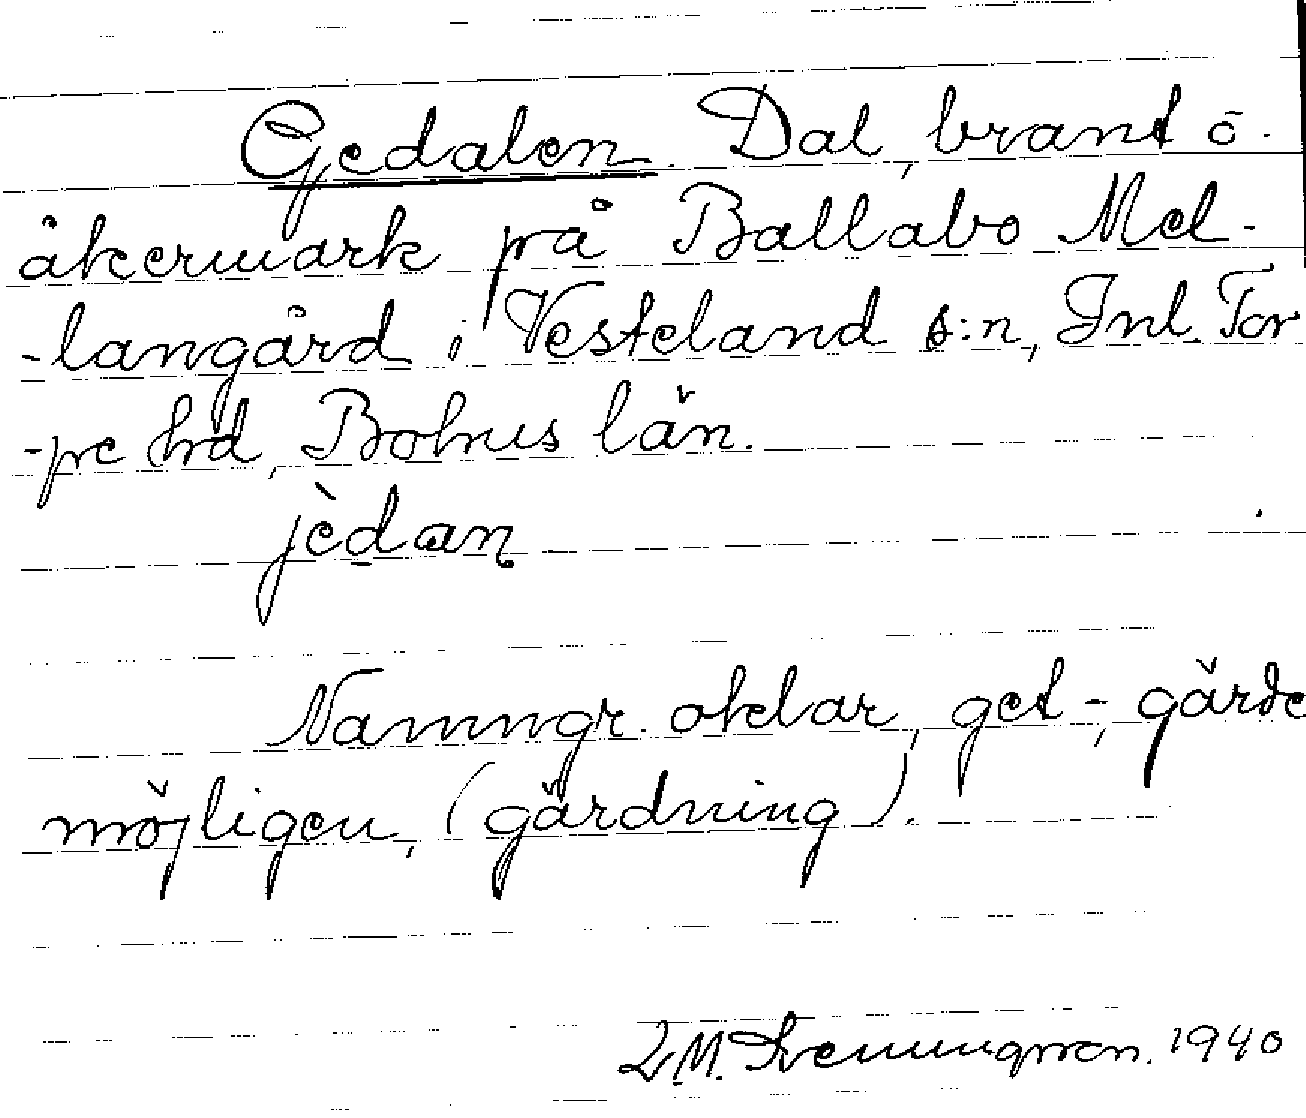 Gedalen. Dal, brant o.
åkermark på Ballabo Mel-
-langård i Vesteland s:n, Inl. Tor
-pe hd, Bohus län.
jèdaṉ
Namngr. oklar, get-, gärde
möjligen, (gärdning).
1940